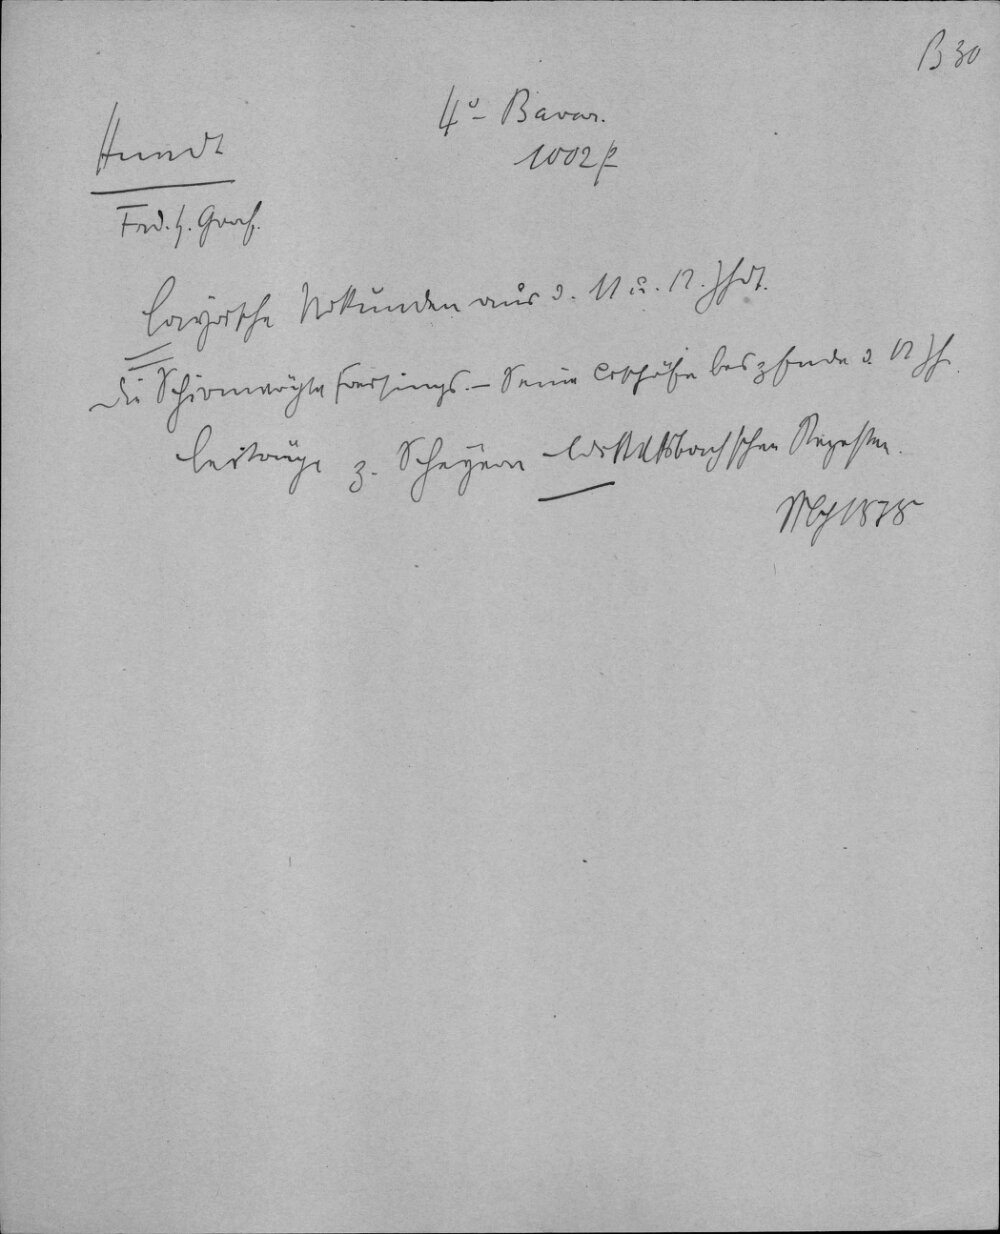 B 30
4° Bavar.
1002 p
Hundt
Frd. H. Graf.
bayrische Urkunden aus d. 11 u. 12. Jhdt.
die Schirmvögte Freisings. – Seine Bischöfe bis z Ende d. 12 Jh.
Beiträge z. Scheyern Wittelsbach'schen Regesten.
1878